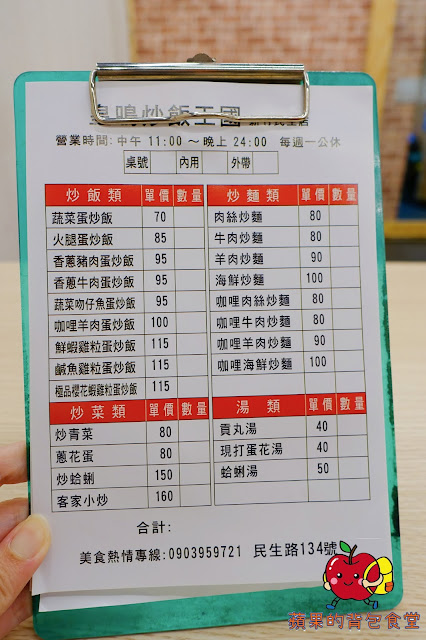 鳴炒飯王國
營業時間: 中午 11:00 ～晚上 24:00 每週一公休
桌號 內用 外帶
炒飯類 單價 數量
蔬菜蛋炒飯 70
火腿蛋炒飯 85
香蔥豬肉蛋炒飯 95
香蔥牛肉蛋炒飯 95
蔬菜吻仔魚蛋炒飯 95
咖哩羊肉蛋炒飯 100
鮮蝦雞粒蛋炒飯 115
鹹魚雞粒蛋炒飯 115
極品櫻花蝦雞粒蛋炒飯 115
炒麵類 單價 數量
肉絲炒麵 80
牛肉炒麵 80
羊肉炒麵 90
海鮮炒麵 100
咖哩肉絲炒麵 80
咖哩牛肉炒麵 80
咖哩羊肉炒麵 90
咖哩海鮮炒麵 100
炒菜類 單價 數量
炒青菜 80
蔥花蛋 80
炒蛤蜊 150
客家小炒 160
湯類 單價 數量
貢丸湯 40
現打蛋花湯 40
蛤蜊湯 50
合計:
美食熱情專線: 0903959721 民生路134號
蘋果的背包食堂